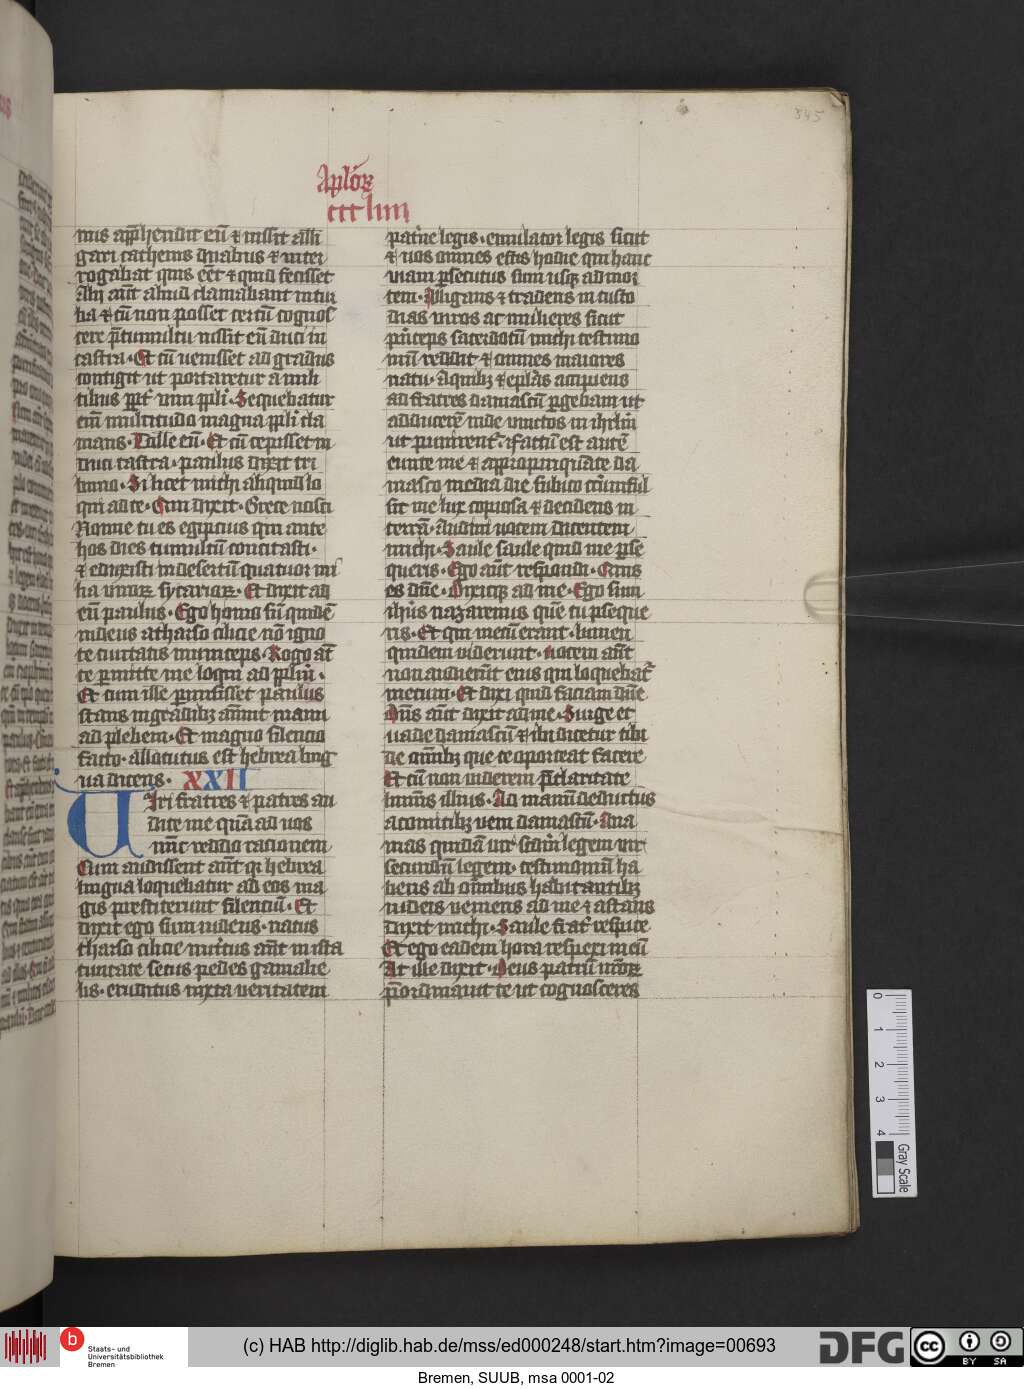 345
Aplor̄
ccc liiii
nus app̄hendit eū ⁊ iussit alli
gari cathenis duabus ⁊ inter
rogabat quis eēt ⁊ quid fecisset
Alij aūt aliud clamabant in tur
ba ⁊ cū non posset certū cognos
cere p̄ tumultu iussit eū duci in
castra. Et cū uenisset ad gradus
contigit ut portaretur a mili
tibus ꝓpt̄ uim ppl̄i. Sequebatur
eīn multitudo magna ppl̄i cla
mans. Tolle eū. Et cū cepisset in
duci castra. paulus dixit tri
buno. Si licet michi aliquid lo
qui ad te. Qui dixit. Grece nosti
Nonne tu es egiptius qui ante
hos dies tumultū concitasti.
⁊ eduxisti in desertū quatuor mi
lia uiroꝝ sycarioꝝ. Et dixit ad
eū paulus. Ego homo sū quidē
iudeus a tharso cilicie nō igno
te ciuitatis municeps. Rogo aūt
te permitte me loqui ad pplm̄.
Et cum ille permisisset paulus
stans in gradibꝫ annuit manu
ad plebem. Et magno silencio
facto. allocutus est hebrea ling
ua dicens. XXII
Uiri fratres ⁊ patres au
dite me quā ad uos
nūc reddo racionem
Cum audissent aūt qr hebrea
lingua loquebatur ad eos ma
gis prestiterunt silenciū. Et
dixit ego sum iudeus. natus
tharso cilicie nutritus aūt in ista
ciuitate secus pedes gamalie
lis. eruditus iuxta ueritatem
pat̄ne legis. emulator legis sicut
⁊ uos omnes estis hodie qui hanc
uiam ꝑsecutus sum usqꝫ ad mor
tem. Alligans ⁊ tradens in custo
dias uiros ac mulieres sicut
prīceps sacerdotū michi testimo
niū reddit ⁊ omnes maiores
natu. A quibꝫ ⁊ epl̄as accipiens
ad fratres damascū ꝑgebam ut
adducerē inde uinctos in ihrlm̄
ut punirent̄. factū est autē
eunte me ⁊ appropinquāte da
masco media die subito circūful
sit me lux copiosa ⁊ decidens in
terrā. Audiui uocem dicentem
michi. Saule saule quid me ꝑse
queris. Ego aūt respondi. Quis
es dn̄e. Dixitqꝫ ad me. Ego sum
ihūs nazarenus quē tu ꝑseque
ris. Et qui mecū erant. lumen
quidem uiderunt. uocem aūt
non audierūt eius qui loquebat̄
mecum. Et dixi quid faciam dn̄e
Dn̄s aūt dixit ad me. Surge et
uade damascū ⁊ ibi dicetur tibi
de om̄ibꝫ que te oporteat facere
Et cū non uiderem p̄ claritate
luminis illius. Ad manū deductus
a comitibꝫ ueni damascū. Ana
nias quidā uir scd̄m legem uir
secundū legem. testimoniū ha
bens ab om̄ibus habitantibꝫ
iudeis ueniens ad me ⁊ astans
dixit michi. Saule frat̄ respice
Et ego eadem hora respexi in eū
At ille dixit. Deus patrū nr̄oꝝ
p̄ordinauit te ut cognosceres
0 1 2 3 4
Gray Scale
b
Staats- und
Universitätsbibliothek
Bremen
(c) HAB http://diglib.hab.de/mss/ed000248/start.htm?image=00693
DFG
cc BY SA
Bremen, SUUB, msa 0001-02